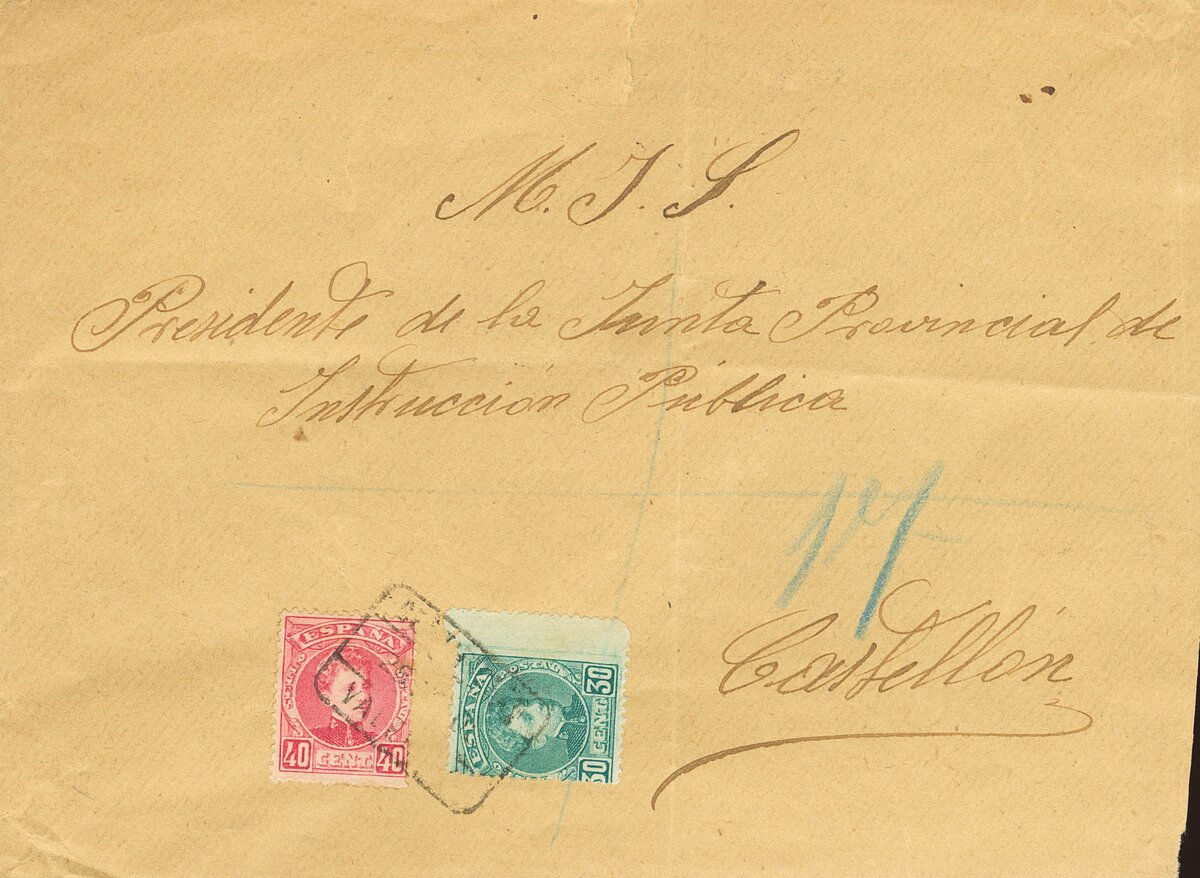 M. I. S.
Presidente de la Junta Provincial de
Instrucción Pública
Castellón
ESPAÑA
40 CENT 40
ESPAÑA
POSTAL
30 CENT 30